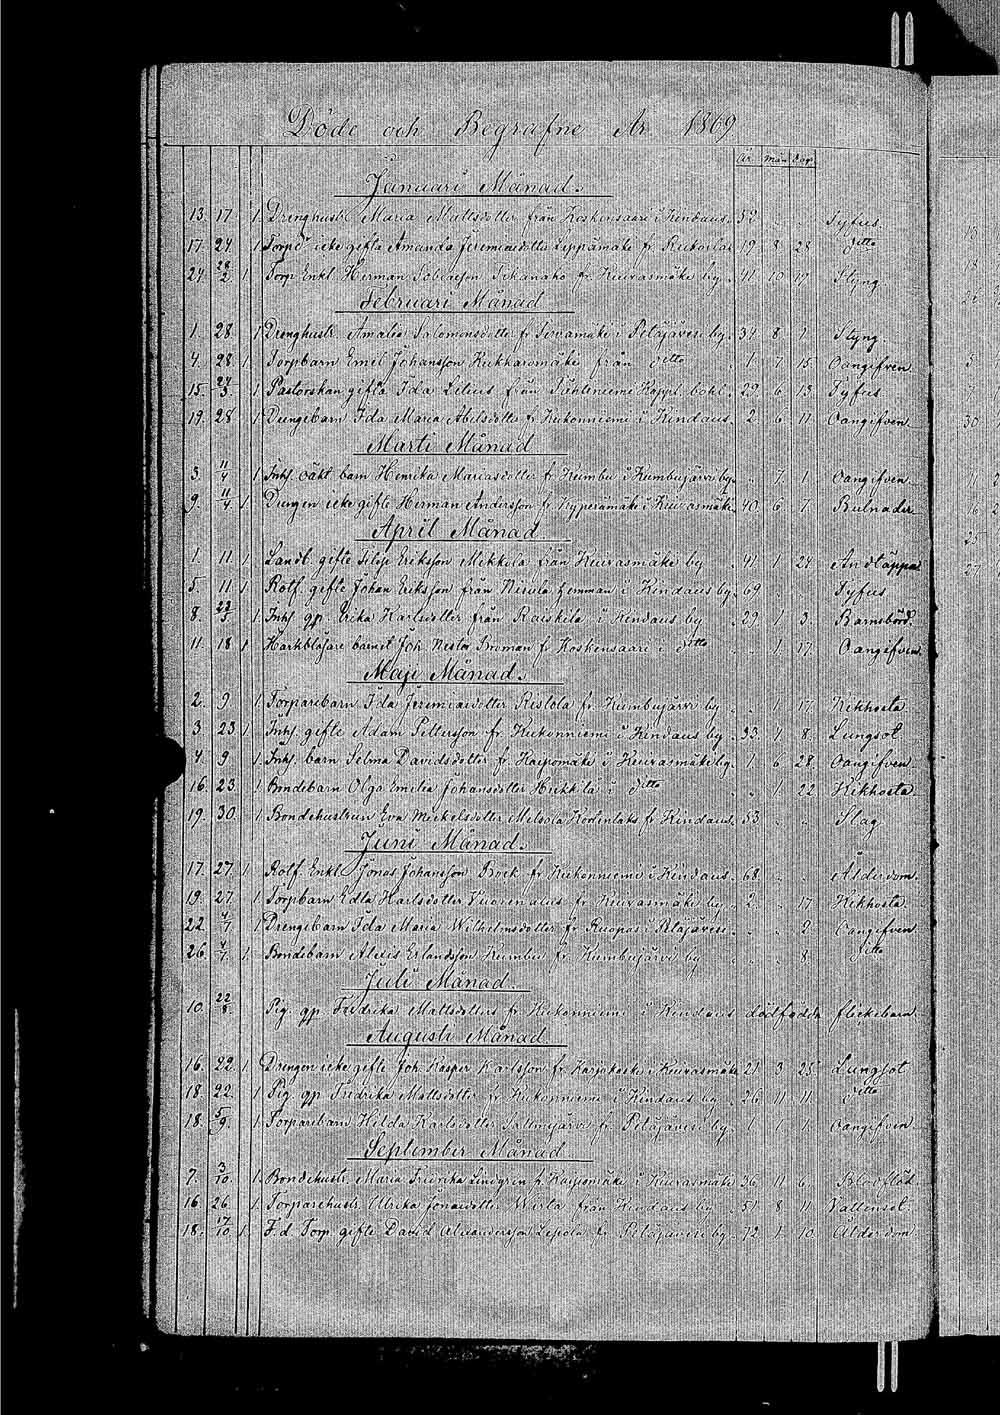 Döde och Begrafne År 1869
År. mån. dag.
Januari Månad.
13. 17. 1. Drenghustr. Maria Mattsdotter från Koskensaari i Kindaus. 52. Tyfus.
17. 24. 1. icke gifta Amanda Jeremiasdotter Leppämäki fr 19. 8. 28. ditto
24. 28/2. 1. Torp. Enkl. Herman fr. Keuvasmäki by. 41. 10. 17. Styng.
Februari Månad
1. 28. 1. Drenghustr. Amalia Salomonsdotter fr i Petäjävesi by. 34. 8. 1. Styng.
4. 28. 1. Torpbarn Emil Johansson Kukkaromäki från ditto 1. 7. 15. Oangifven.
15. 27/3. 1. Pastorskan gifta Ida Lilius från Kappel. bohl. 22. 6. 13. Tyfus
19. 28. 1. Ida Maria Abelsdotter fr Kukonniemi i Kindaus. 2. 6. 11. Oangifven.
Marti Månad
3. 11/4. 1. Inhs. oäkt barn Henrika Mariasdotter fr Kumbu i Kumbujärvi by. 7. 1. Oangifven.
9. 11/4. 1. Drengen icke gifte Herman Andersson fr Kypärämäki i Keuvasmäki. 40. 6. 7. Bulnader
April Månad
1. 11. 1. Landb. gifte Filip Eriksson Mikkola från Keuvasmäki by 41. 1. 24. Andtäppa
5. 11. 1. Rotf. gifte Johan Eriksson från Nisula hemman i Kindaus by. 69. Tyfus
8. 23/5. 1. Inhs. qp. Erika Karlsdotter från Raiskila i Kindaus by 29. 1. 3. Barnsbörd.
11. 18. 1. barnet Joh. Nestor Broman fr Koskensaari i ditto 1. 17. Oangifven.
Maji Månad.
2. 9. 1. Torparebarn Ida Jeremiasdotter Ristola fr. Kumbujärvi by 1. 17. Kikhosta
3. 23. 1. Inhs. gifte Adam Pettersson fr. Kukonniemi i Kindaus by. 33. 1. 8. Lungsot.
4. 9. 1. Inhs. barn Selma Davidsdotter fr. i Keuvasmäki by. 1. 6. 28. Oangifven.
16. 23. 1. Bondebarn Olga Emilia Johansdotter Heikkilä i ditto 1. 22. Kikhosta.
19. 30. 1. Bondehustrun Eva Mickelsdotter fr Kindaus. 53. Slag.
Juni Månad.
17. 27. 1. Rotf. Enkl. Jonas Johansson Bock fr Kukonniemi i Kindaus. 68. Ålderdom.
19. 27. 1. Torpbarn Edla Karlsdotter Vuorenalus fr Keuvasmäki by. 2. 17. Kikhosta
22. 4/7. 1. Drengebarn Ida Maria Wilhelmsdotter fr Ruopas i Petäjävesi. 2. Oangifven.
26. 4/7. 1. Bondebarn Alexis Erlandsson Kumbu fr Kumbujärvi by 8. ditto
Juli Månad.
10. 22/8. Pig. qp. Fredrika Mattsdotters fr Kukonniemi i Kindaus dödfödda flickebarn.
Augusti Månad.
16. 22. 1. Drengen icke gifte Joh. Kasper Karlsson fr Karjokoski i Keuvasmäki. 21. 3. 25. Lungsot
18. 22. 1. Pig. qp. Fredrika Mattsdotter fr Kukonniemi i Kindaus by. 26. 11. 11. ditto
18. 5/9. 1. Torparebarn Hilda Karlsdotter fr. Petäjävesi by. 1. 1. 1. Oangifven.
September Månad
7. 3/10. 1. Bondehustr. Maria Fredrika Lindgren fr i Keuvasmäki 36. 11. 6. Blodflöd.
16. 26. 1. Torparehustr. Ulrika Jonasdotter Wesla från Kindaus by 51. 8. 11. Vattensot.
18. 17/10. 1. F.d. Torp. gifte David Alexandersson Lepola fr Petäjävesi by. 72. 1. 10. Ålderdom.